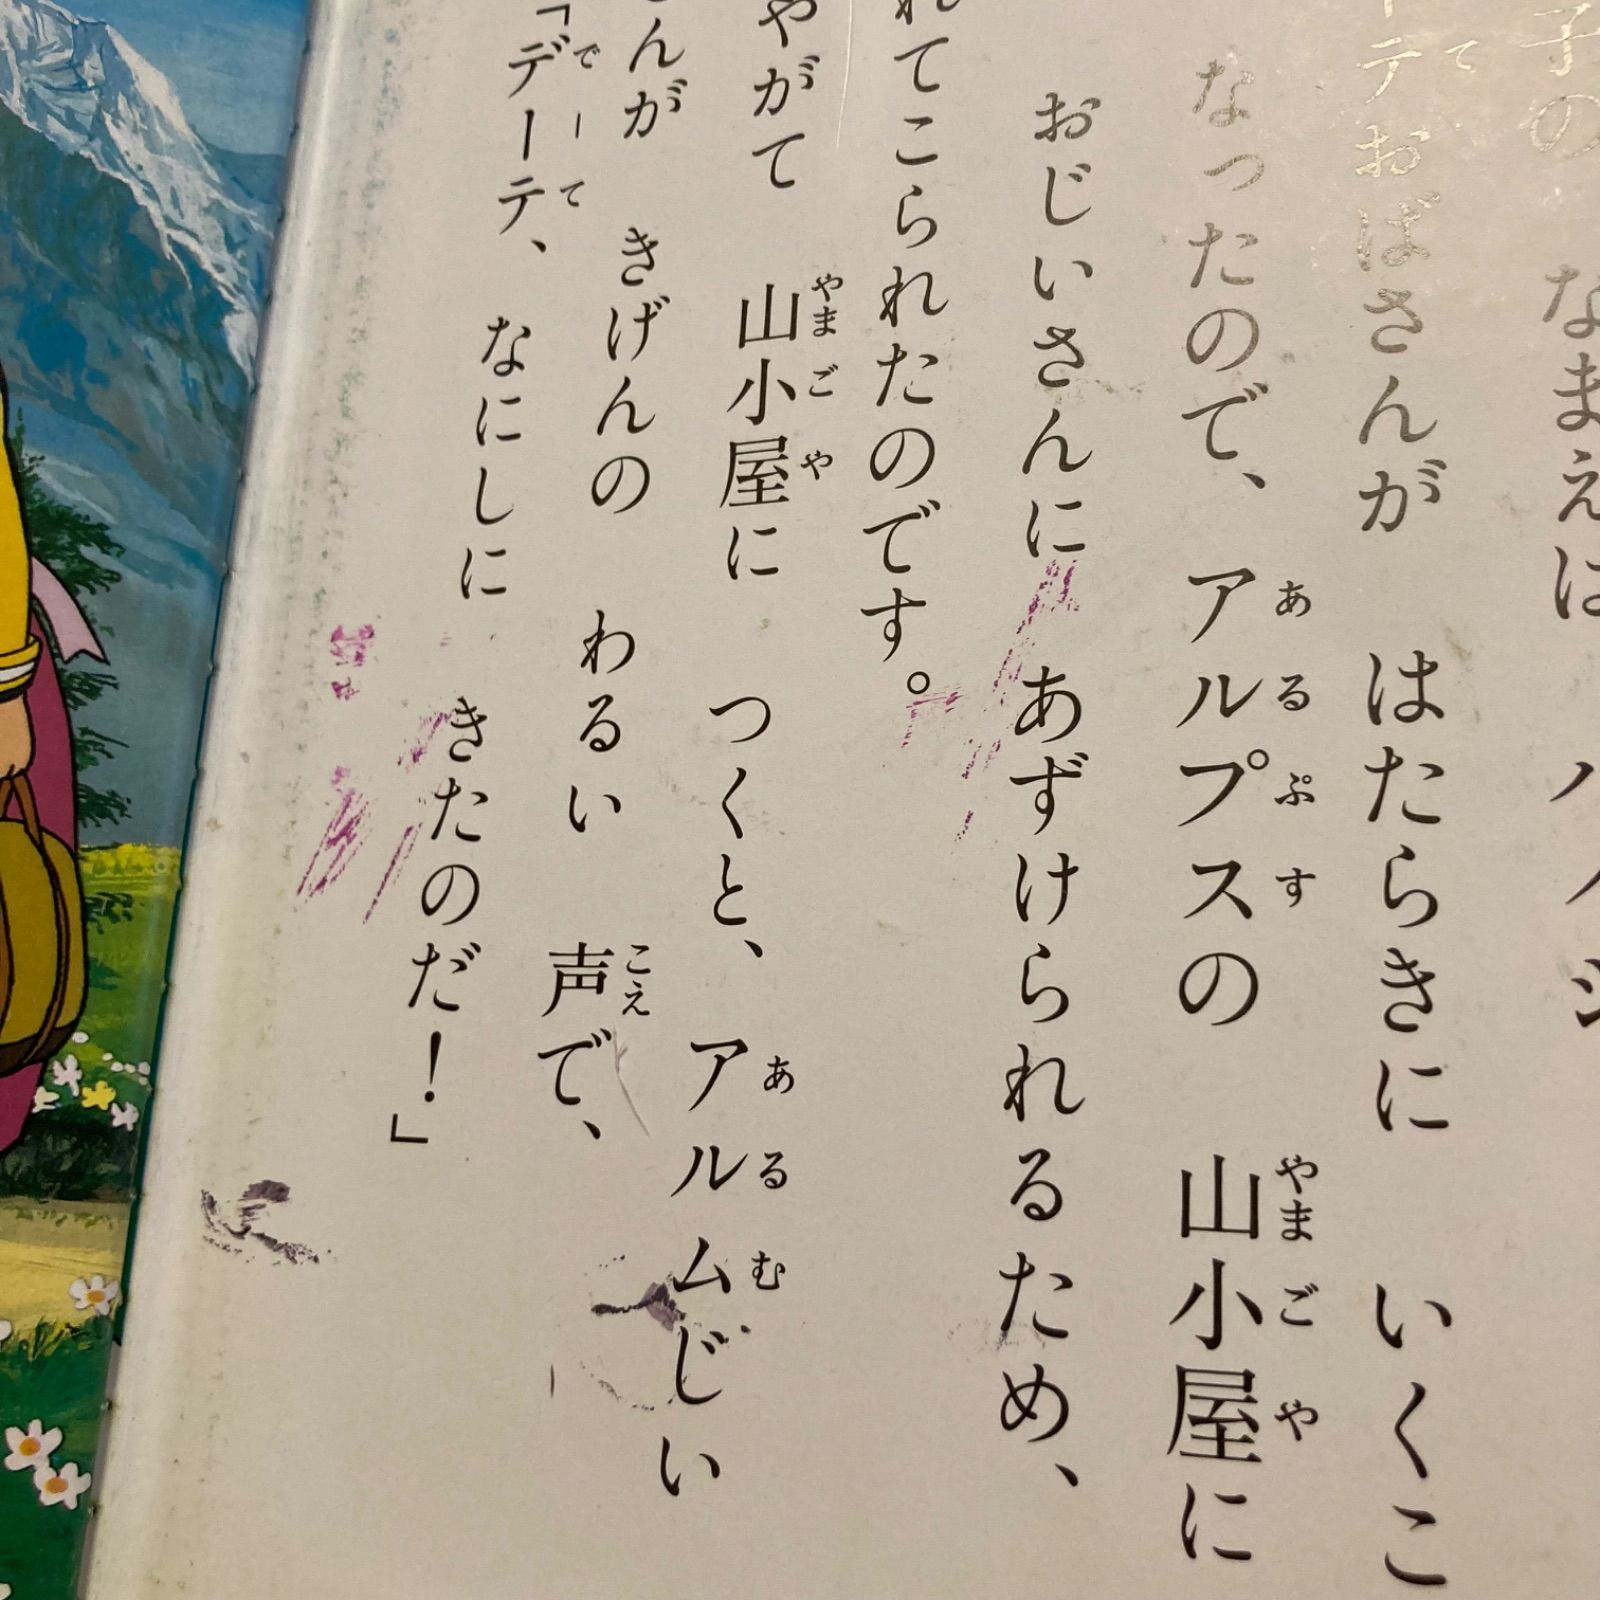 子の なまえは ハイジ
テおばさんが はたらきに いくこ
なったので、 アルプスの 山小屋に
おじいさんに あずけられるため、
れてこられたのです。
やがて 山小屋に つくと、 アルムじい
さんが きげんの わるい 声で、
「デーテ、 なにしに きたのだ！」